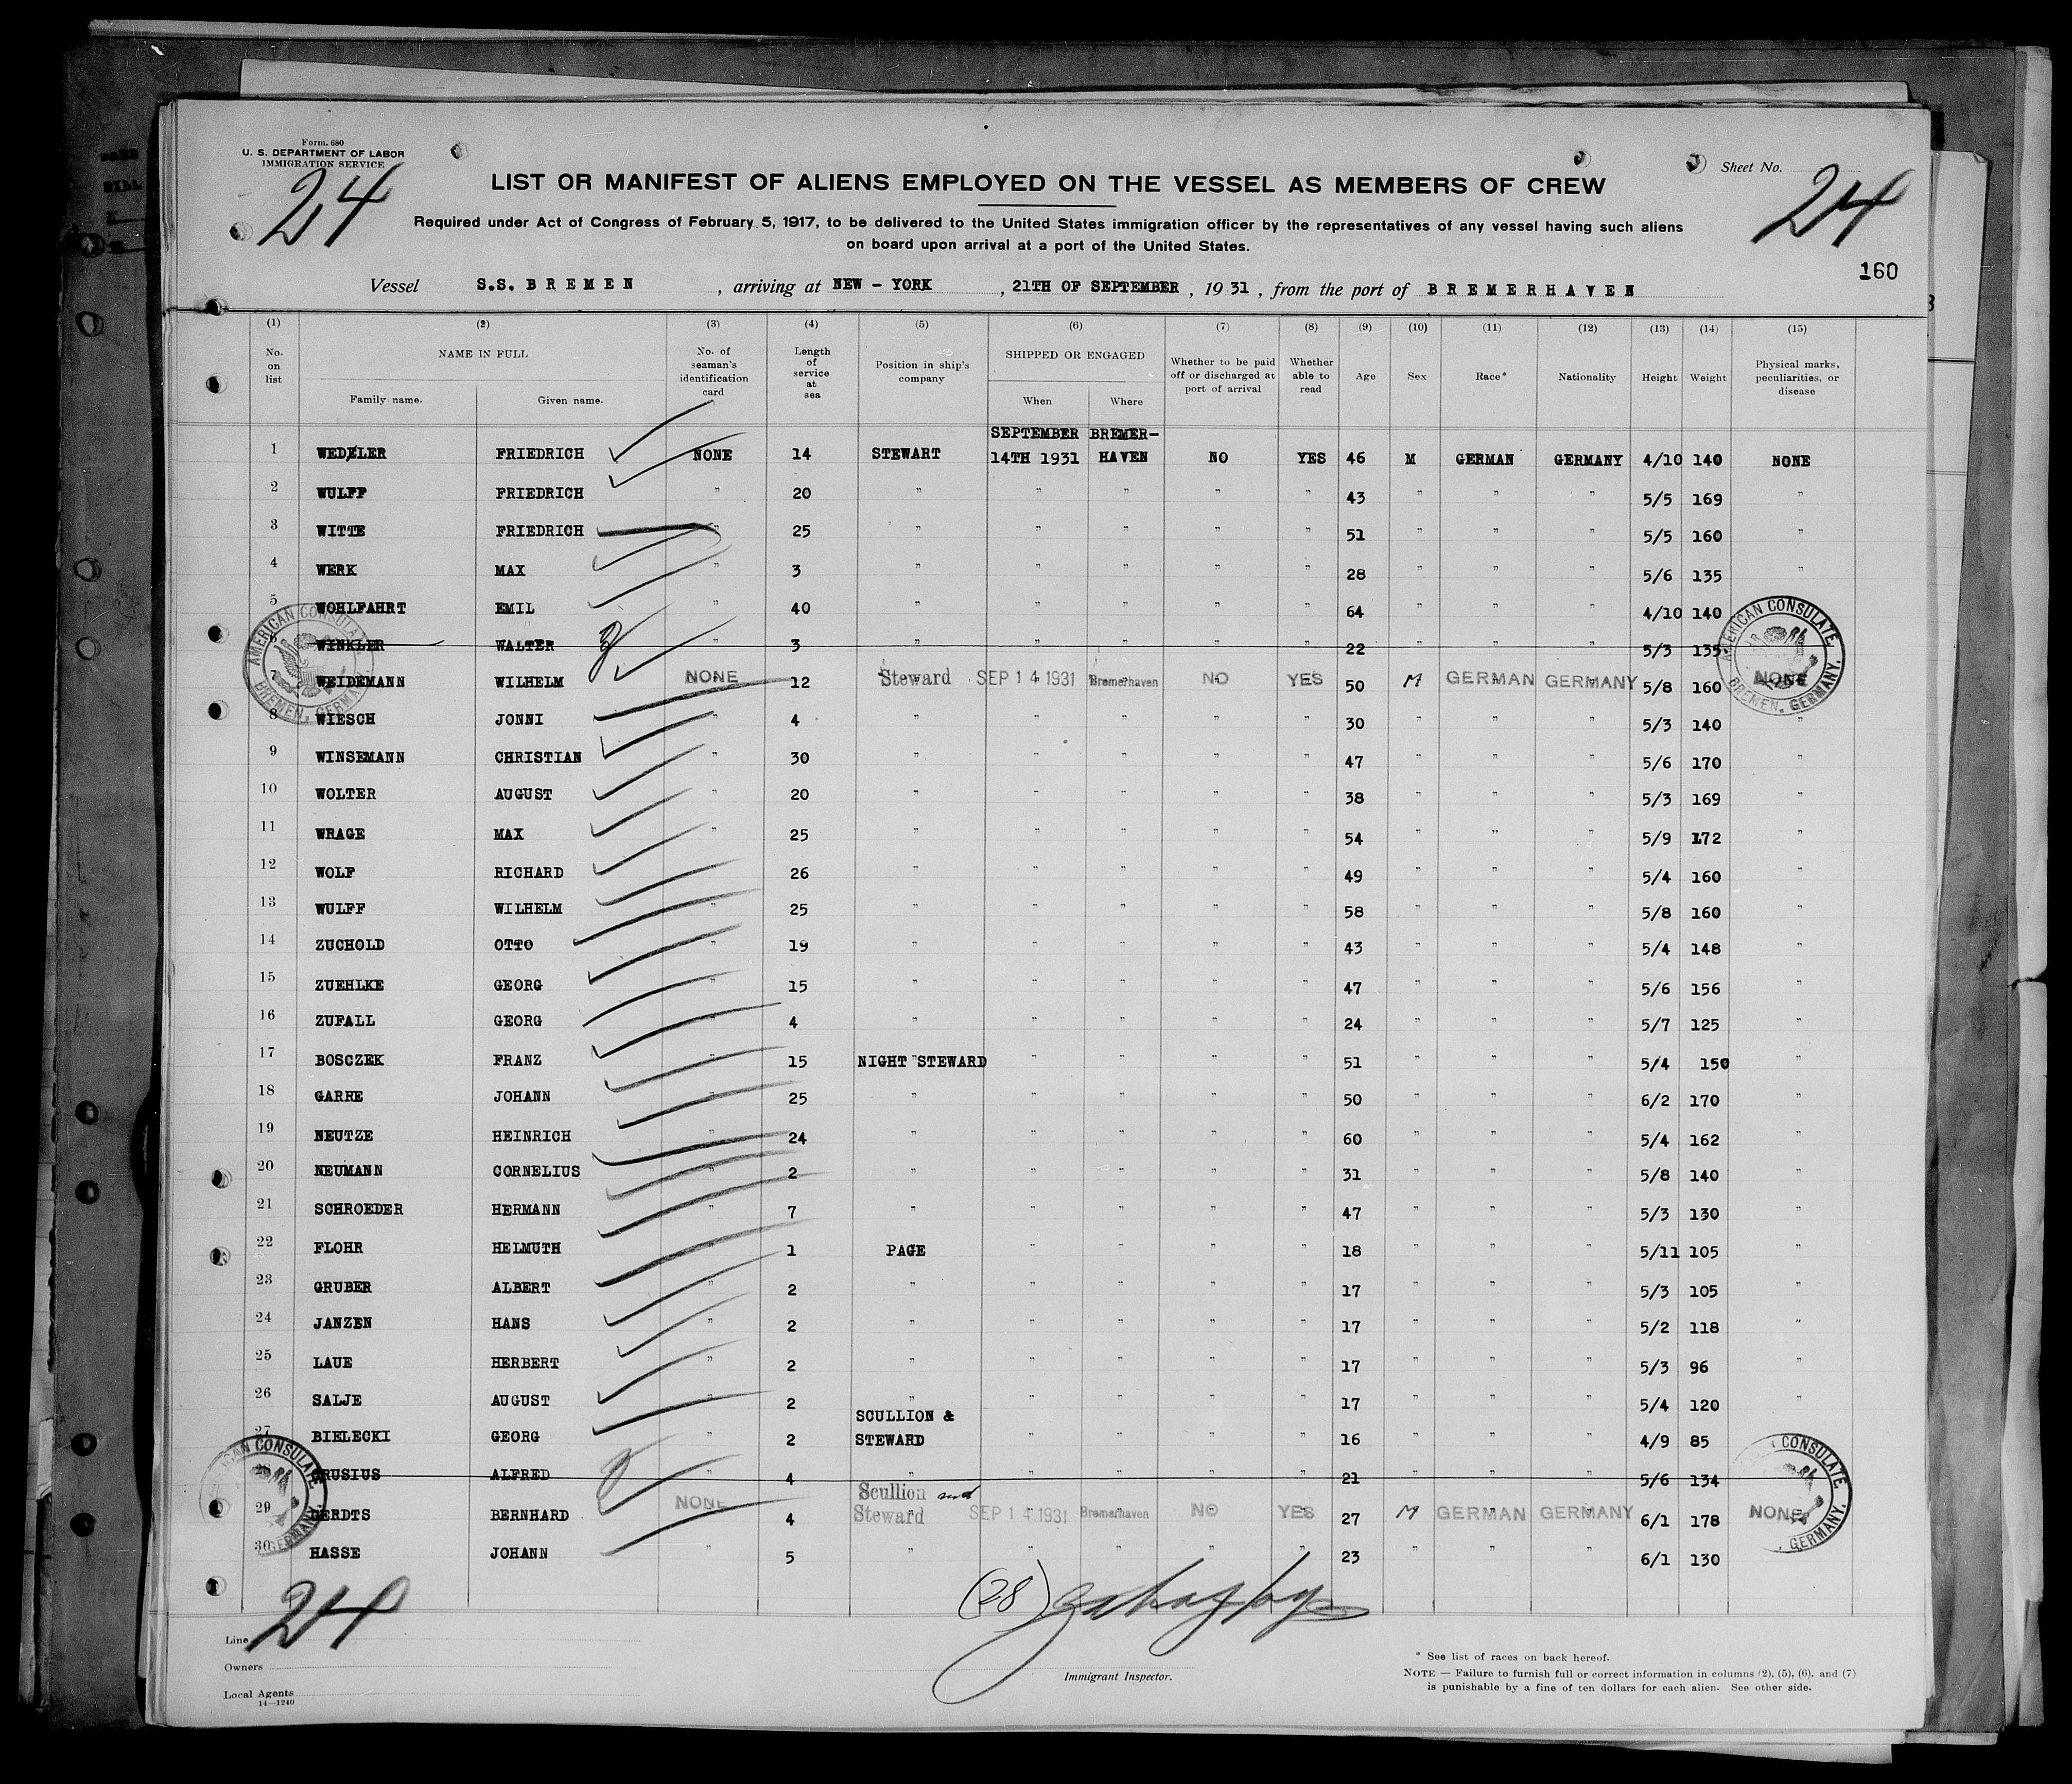 Form. 680
U. S. DEPARTMENT OF LABOR
IMMIGRATION SERVICE
24
Sheet No. 24
LIST OR MANIFEST OF ALIENS EMPLOYED ON THE VESSEL AS MEMBERS OF CREW
Required under Act of Congress of February 5, 1917, to be delivered to the United States immigration officer by the representatives of any vessel having such aliens
on board upon arrival at a port of the United States.
160
Vessel S.S. BREMEN , arriving at NEW - YORK , 21TH OF SEPTEMBER , 1931 , from the port of BREMERHAVEN
(1) (2) (3) (4) (5) (6) (7) (8) (9) (10) (11) (12) (13) (14) (15)
No. on list NAME IN FULL Family name. Given name. No. of seaman's identification card Length of service at sea Position in ship's company SHIPPED OR ENGAGED When Where Whether to be paid off or discharged at port of arrival Whether able to read Age Sex Race* Nationality Height Weight Physical marks, peculiarities, or disease
1 WEDELER FRIEDRICH NONE 14 STEWART SEPTEMBER 14TH 1931 BREMER-HAVEN NO YES 46 M GERMAN GERMANY 4/10 140 NONE
2 WULFF FRIEDRICH " 20 " " " " " 43 " " " 5/5 169 "
3 WITTE FRIEDRICH " 25 " " " " " 51 " " " 5/5 160 "
4 WERK MAX " 3 " " " " " 28 " " " 5/6 135 "
5 WOHLFAHRT EMIL " 40 " " " " " 64 " " " 4/10 140 "
6 WINKLER WALTER " 3 " " " " " 22 " " " 5/3 135
7 WEIDEMANN WILHELM NONE 12 Steward SEP 14 1931 Bremerhaven NO YES 50 M GERMAN GERMANY 5/8 160 NONE
AMERICAN CONSULATE BREMEN, GERMANY.
AMERICAN CONSULATE, BREMEN, GERMANY.
8 WIESCH JONNI " 4 " " " " " 30 " " " 5/3 140 "
9 WINSEMANN CHRISTIAN " 30 " " " " " 47 " " " 5/6 170 "
10 WOLTER AUGUST " 20 " " " " " 38 " " " 5/3 169 "
11 WRAGE MAX " 25 " " " " " 54 " " " 5/9 172 "
12 WOLF RICHARD " 26 " " " " " 49 " " " 5/4 160 "
13 WULFF WILHELM " 25 " " " " " 58 " " " 5/8 160 "
14 ZUCHOLD OTTO " 19 " " " " " 43 " " " 5/4 148 "
15 ZUEHLKE GEORG " 15 " " " " " 47 " " " 5/6 156 "
16 ZUFALL GEORG " 4 " " " " " 24 " " " 5/7 125 "
17 BOSCZEK FRANZ " 15 NIGHT STEWARD " " " " 51 " " " 5/4 150 "
18 GARRE JOHANN " 25 " " " " " 50 " " " 6/2 170 "
19 NEUTZE HEINRICH " 24 " " " " " 60 " " " 5/4 162 "
20 NEUMANN CORNELIUS " 2 " " " " " 31 " " " 5/8 140 "
21 SCHROEDER HERMANN " 7 " " " " " 47 " " " 5/3 130 "
22 FLOHR HELMUTH " 1 PAGE " " " " 18 " " " 5/11 105 "
23 GRUBER ALBERT " 2 " " " " " 17 " " " 5/3 105 "
24 JANZEN HANS " 2 " " " " " 17 " " " 5/2 118 "
25 LAUE HERBERT " 2 " " " " " 17 " " " 5/3 96 "
26 SALJE AUGUST " 2 " " " " " 17 " " " 5/4 120 "
27 BIELECKI GEORG " 2 SCULLION & STEWARD " " " " 16 " " " 4/9 85 "
28 CRUSIUS ALFRED " 4 " " " " " 21 " " " 5/6 134
29 GERDTS BERNHARD NONE 4 Scullion and Steward SEP 14 1931 Bremerhaven NO YES 27 M GERMAN GERMANY 6/1 178 NONE
30 HASSE JOHANN " 5 " " " " " 23 " " " 6/1 130 "
CAN CONSULATE GERMANY
CONSULATE, GERMANY.
24
(28)
Line
Owners
Local Agents
14—1240
Immigrant Inspector.
* See list of races on back hereof.
NOTE — Failure to furnish full or correct information in columns (2), (5), (6), and (7)
is punishable by a fine of ten dollars for each alien. See other side.